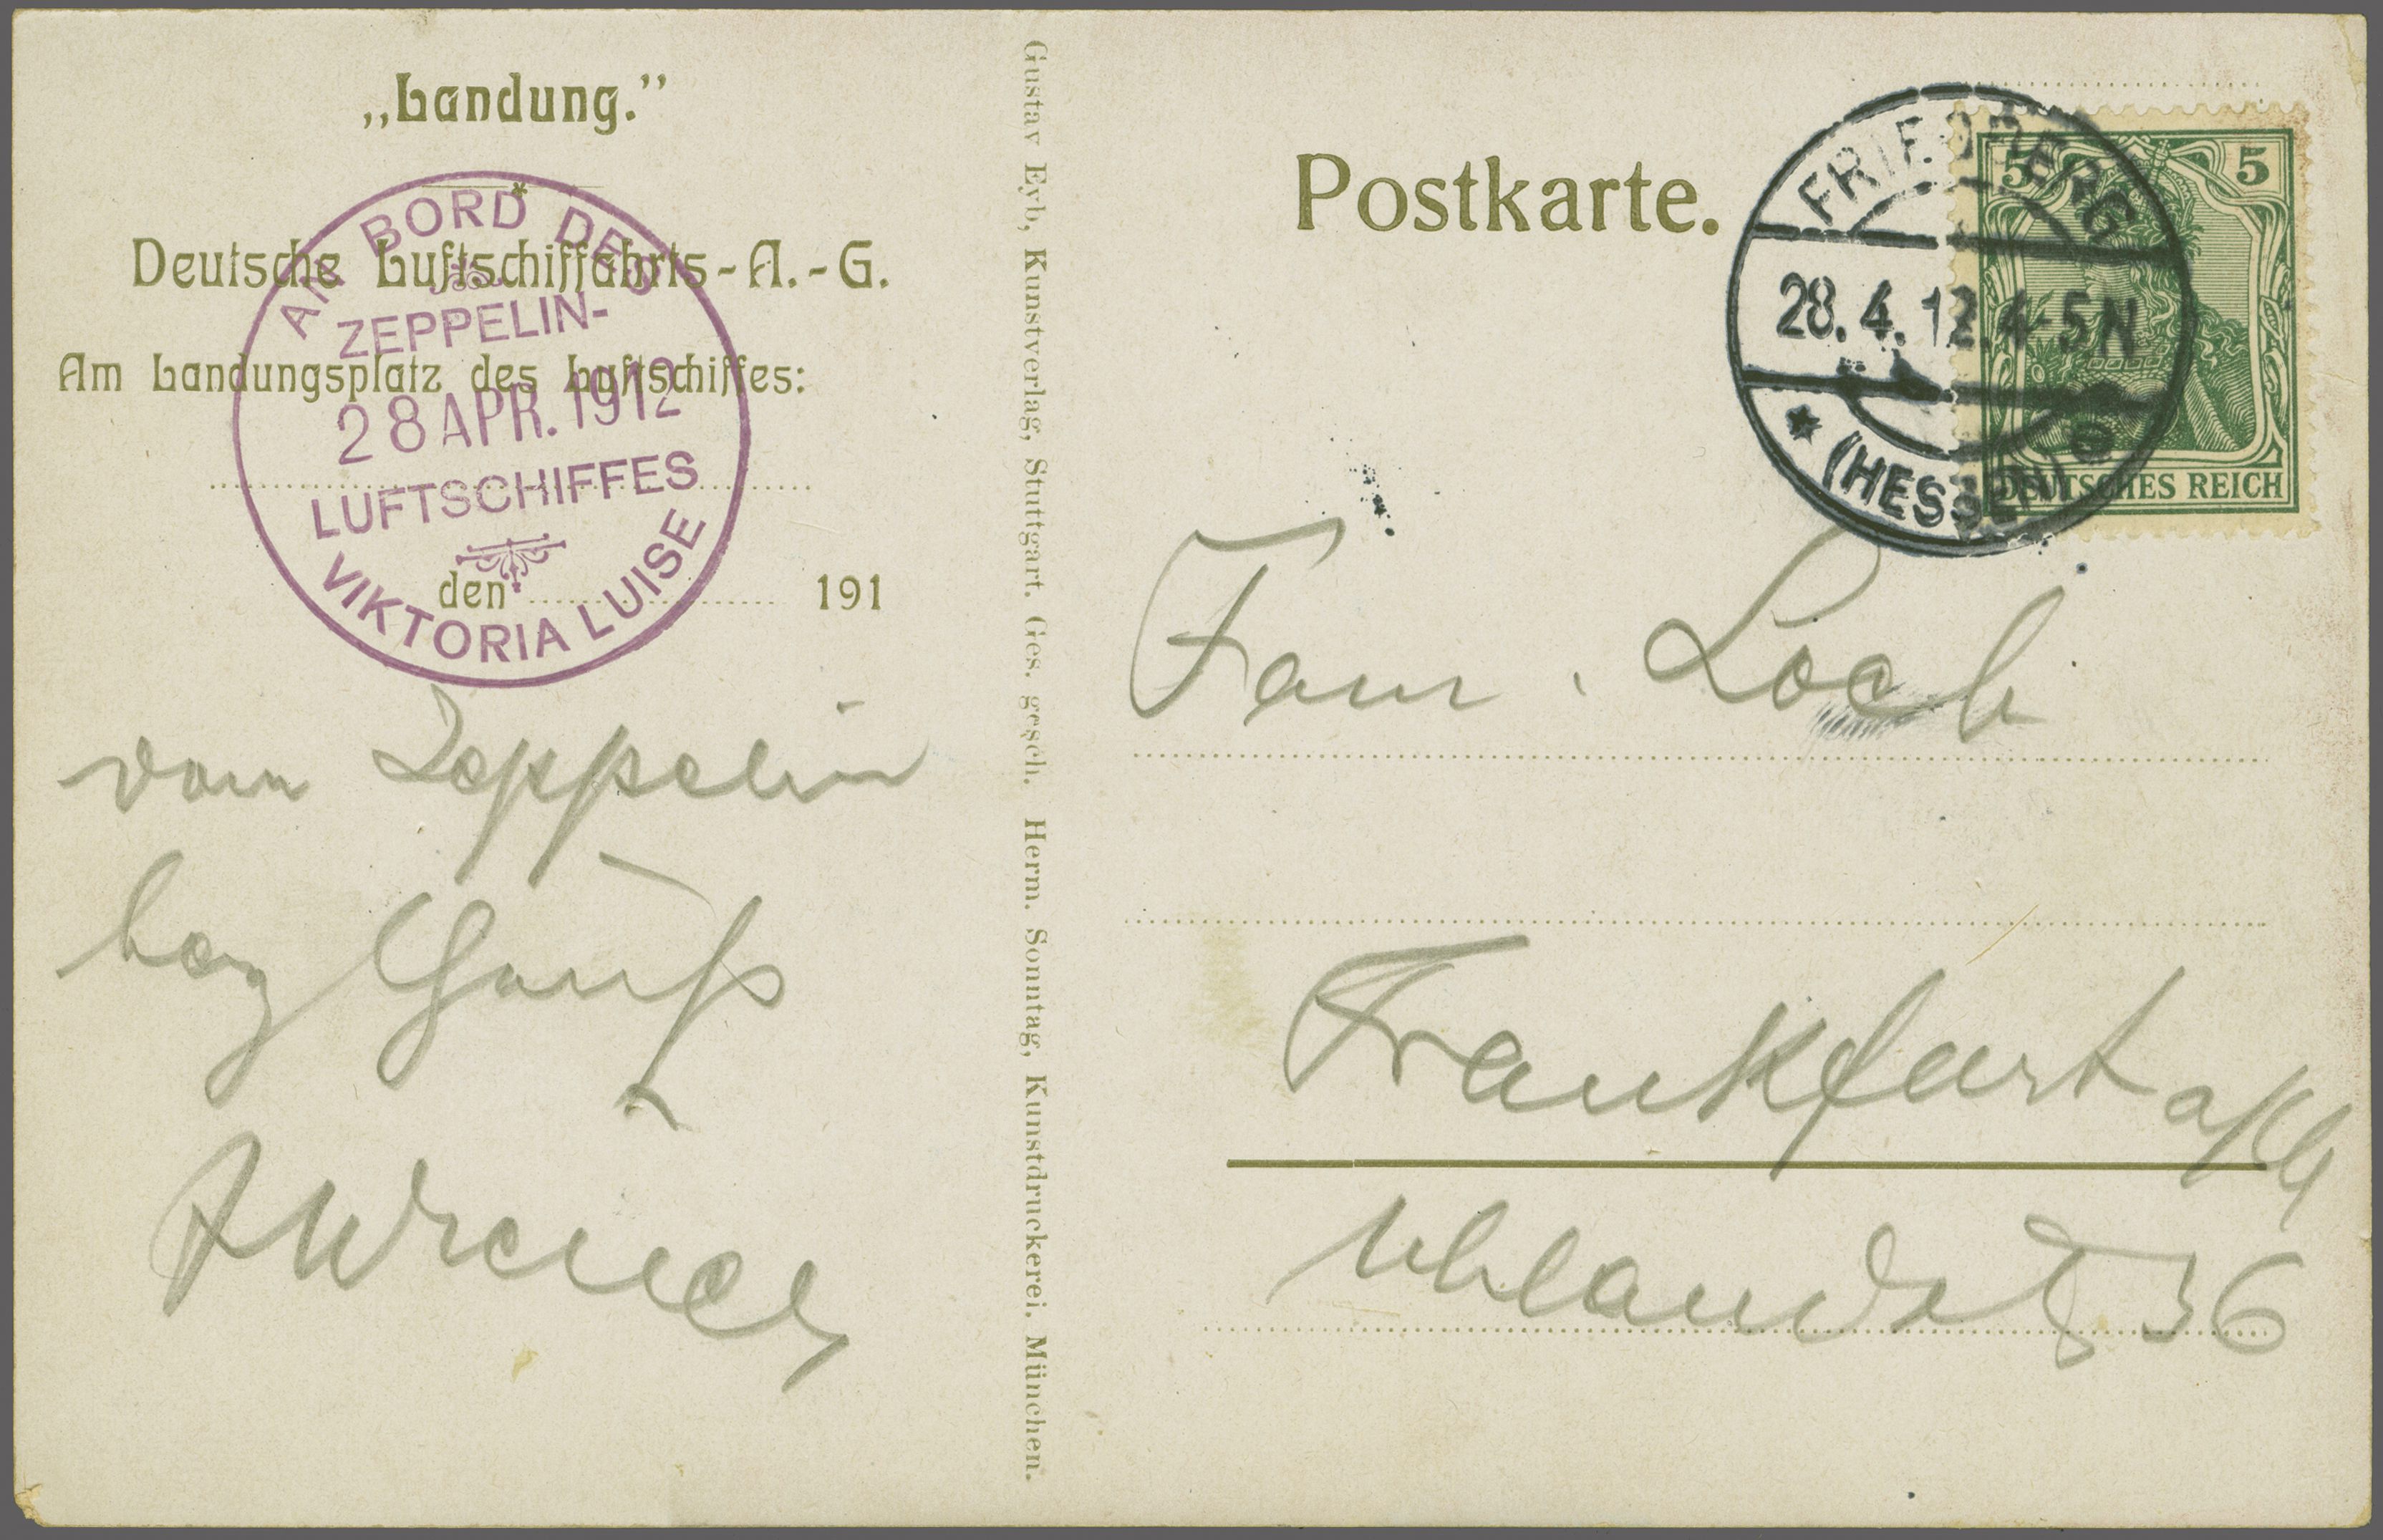 „Landung.”
Deutsche Luftschiffahrts-A.-G.
Am Landungsplatz des Luftschiffes:
den 191
AN BORD DES
ZEPPELIN-
28 APR. 1912
LUFTSCHIFFES
VIKTORIA LUISE
vom Zeppelin
Gustav Eyb, Kunstverlag, Stuttgart. Ges. gesch. Herm. Sonntag, Kunstdruckerei, München.
Postkarte.
FRIEDBERG
28.4.12.4-5N
* (HESSEN) e
5 5
DEUTSCHES REICH
Fam. Loeb
Frankfurt a/M
Uhlandstr 36